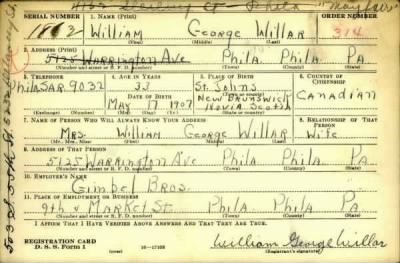 4162 Stirling St - Phila "Mayfair"
SERIAL NUMBER 1. NAME (Print) ORDER NUMBER
1802 William George Willar 314
(First) (Middle) (Last)
2. ADDRESS (Print)
5125 Warrington Ave Phila. Phila. Pa.
(Number and street or R. F. D. number) (Town) (County) (State)
3. TELEPHONE 4. AGE IN YEARS 5. PLACE OF BIRTH 6. COUNTRY OF CITIZENSHIP
33 St. Johns
Phila SAR. 9032 DATE OF BIRTH New Brunswick Canadian
May 17 1907 Novia Scotia
(Exchange) (Number) (Mo.) (Day) (Yr.) (State or country)
7. NAME OF PERSON WHO WILL ALWAYS KNOW YOUR ADDRESS 8. RELATIONSHIP OF THAT PERSON
Mrs. William George Willar Wife
(Mr., Mrs., Miss) (First) (Middle) (Last)
9. ADDRESS OF THAT PERSON
5125 Warrington Ave Phila. Phila. Pa.
(Number and street or R. F. D. number) (Town) (County) (State)
10. EMPLOYER'S NAME
Gimbel Bros.
11. PLACE OF EMPLOYMENT OR BUSINESS
9th & Market St. Phila. Phila. Pa.
(Number and street or R. F. D. number) (Town) (County) (State)
I AFFIRM THAT I HAVE VERIFIED ABOVE ANSWERS AND THAT THEY ARE TRUE.
REGISTRATION CARD
D. S. S. Form 1 16—17105 William George Willar
(Registrant's signature)